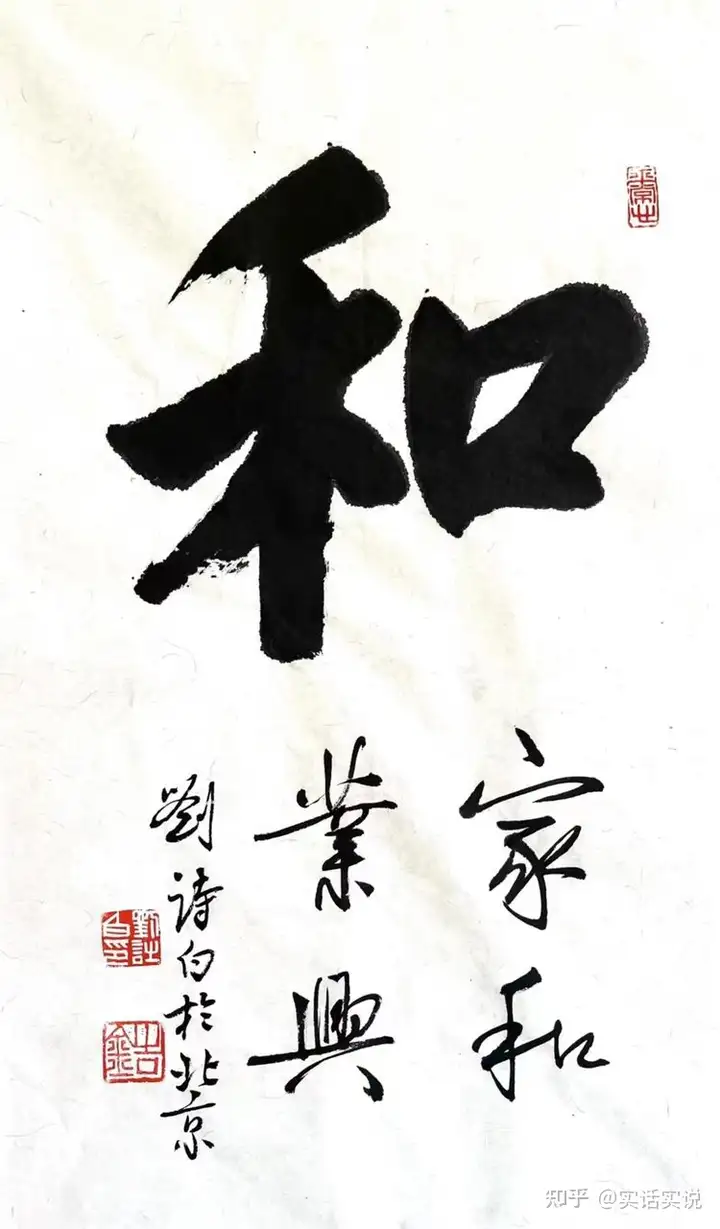 和
家和
業興
劉詩白於北京
知乎 @实话实说